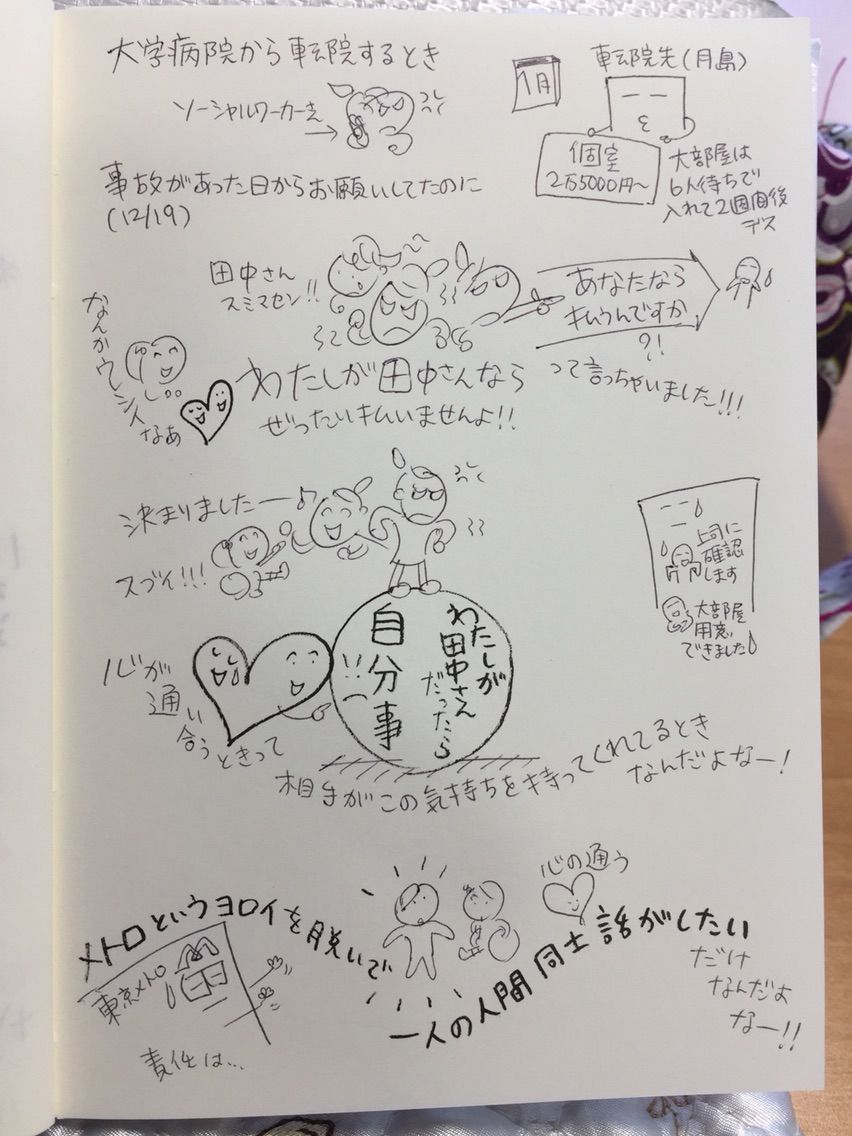 大学病院から転院するとき
1月
転院先(月島)
ソーシャルワーカーさん
個室
2万5000円〜
大部屋は
6人待ちで
入れて2週間後
デス
事故があった日からお願いしてたのに
(12/19)
田中さん
スミマセン!!
あなたなら
払うんですか
?!
って言っちゃいました!!!
なんかウレシイ
なあ
わたしが田中さんなら
ぜったい払いませんよ!!
決まりましたー♪
スゴイ!!!
上司に
確認
します
大部屋
用意
できました
わたしが
田中さん
だったら
自分事
!!
心が
通い
合うときって
相手がこの気持ちを持ってくれてるとき
なんだよなー!
心の通う
メトロというヨロイを脱いで
一人の人間同士話がしたい
だけ
なんだよ
なー!!
東京メトロ
責任は...